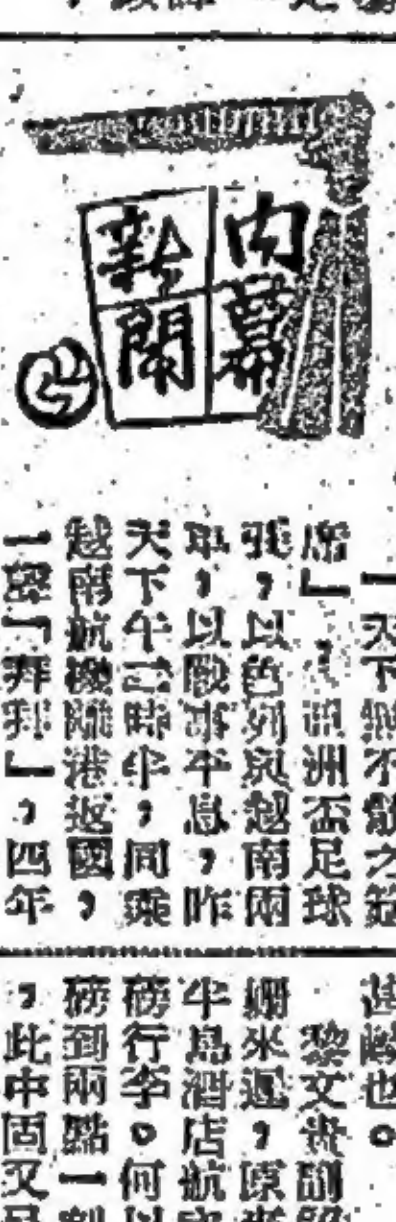 內幕
新聞
「天下無不散之筵
席」,亞洲盃足球
張,以色列與越南兩
軍,以戰事平息,昨
天下午二時半,同乘
越南航機離港返國,
一聲「拜拜」,四年
也。
黎文貴副
來遲,原來
半島酒店航
磅行李。何以
磅到兩點一刻
,此中固又